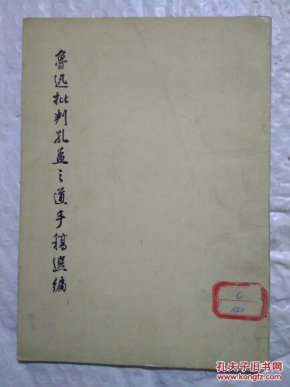 鲁迅批判孔孟之道手稿选编
孔夫子旧书网